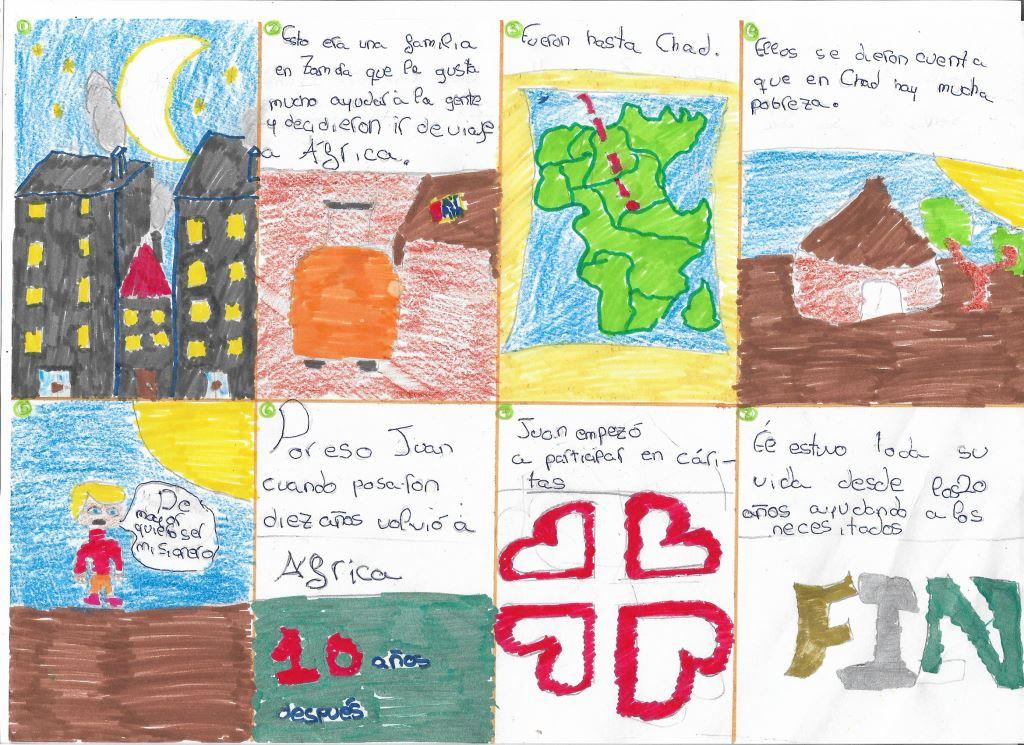 1
2
Esto era una familia
en Zamora que le gusta
mucho ayudar a la gente
y decidieron ir de viaje
a África.
3
Fueron hasta Chad.
4
Ellos se dieron cuenta
que en Chad hay mucha
pobreza.
5
De
mayor
quiero ser
misionero
6
Por eso Juan
cuando pasaron
diez años volvió a
África
10 años
después
7
Juan empezó
a participar en cári-
tas
8
Él estuvo toda su
vida desde los 20
años ayudando a los
necesitados
FIN